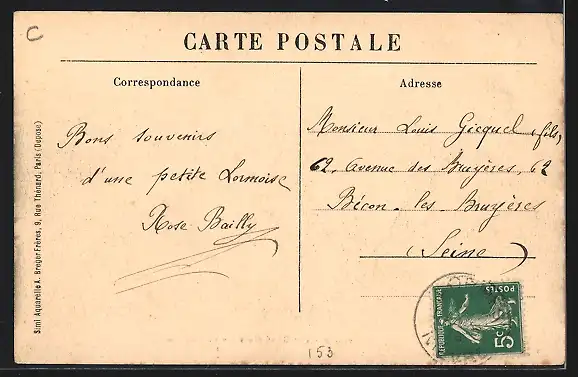 C
CARTE POSTALE
Correspondance
Adresse
Bons souvenirs
d'une petite Lormoise
Rose Bailly
Monsieur Louis Gicquel (fils)
62, avenue des Bruyères, 62
Bécon-les-Bruyères
(Seine)
Simi Aquarelle A. Breger Frères, 9, Rue Thénard, Paris (Déposé)
REPUBLIQUE FRANÇAISE
POSTES
5c
153